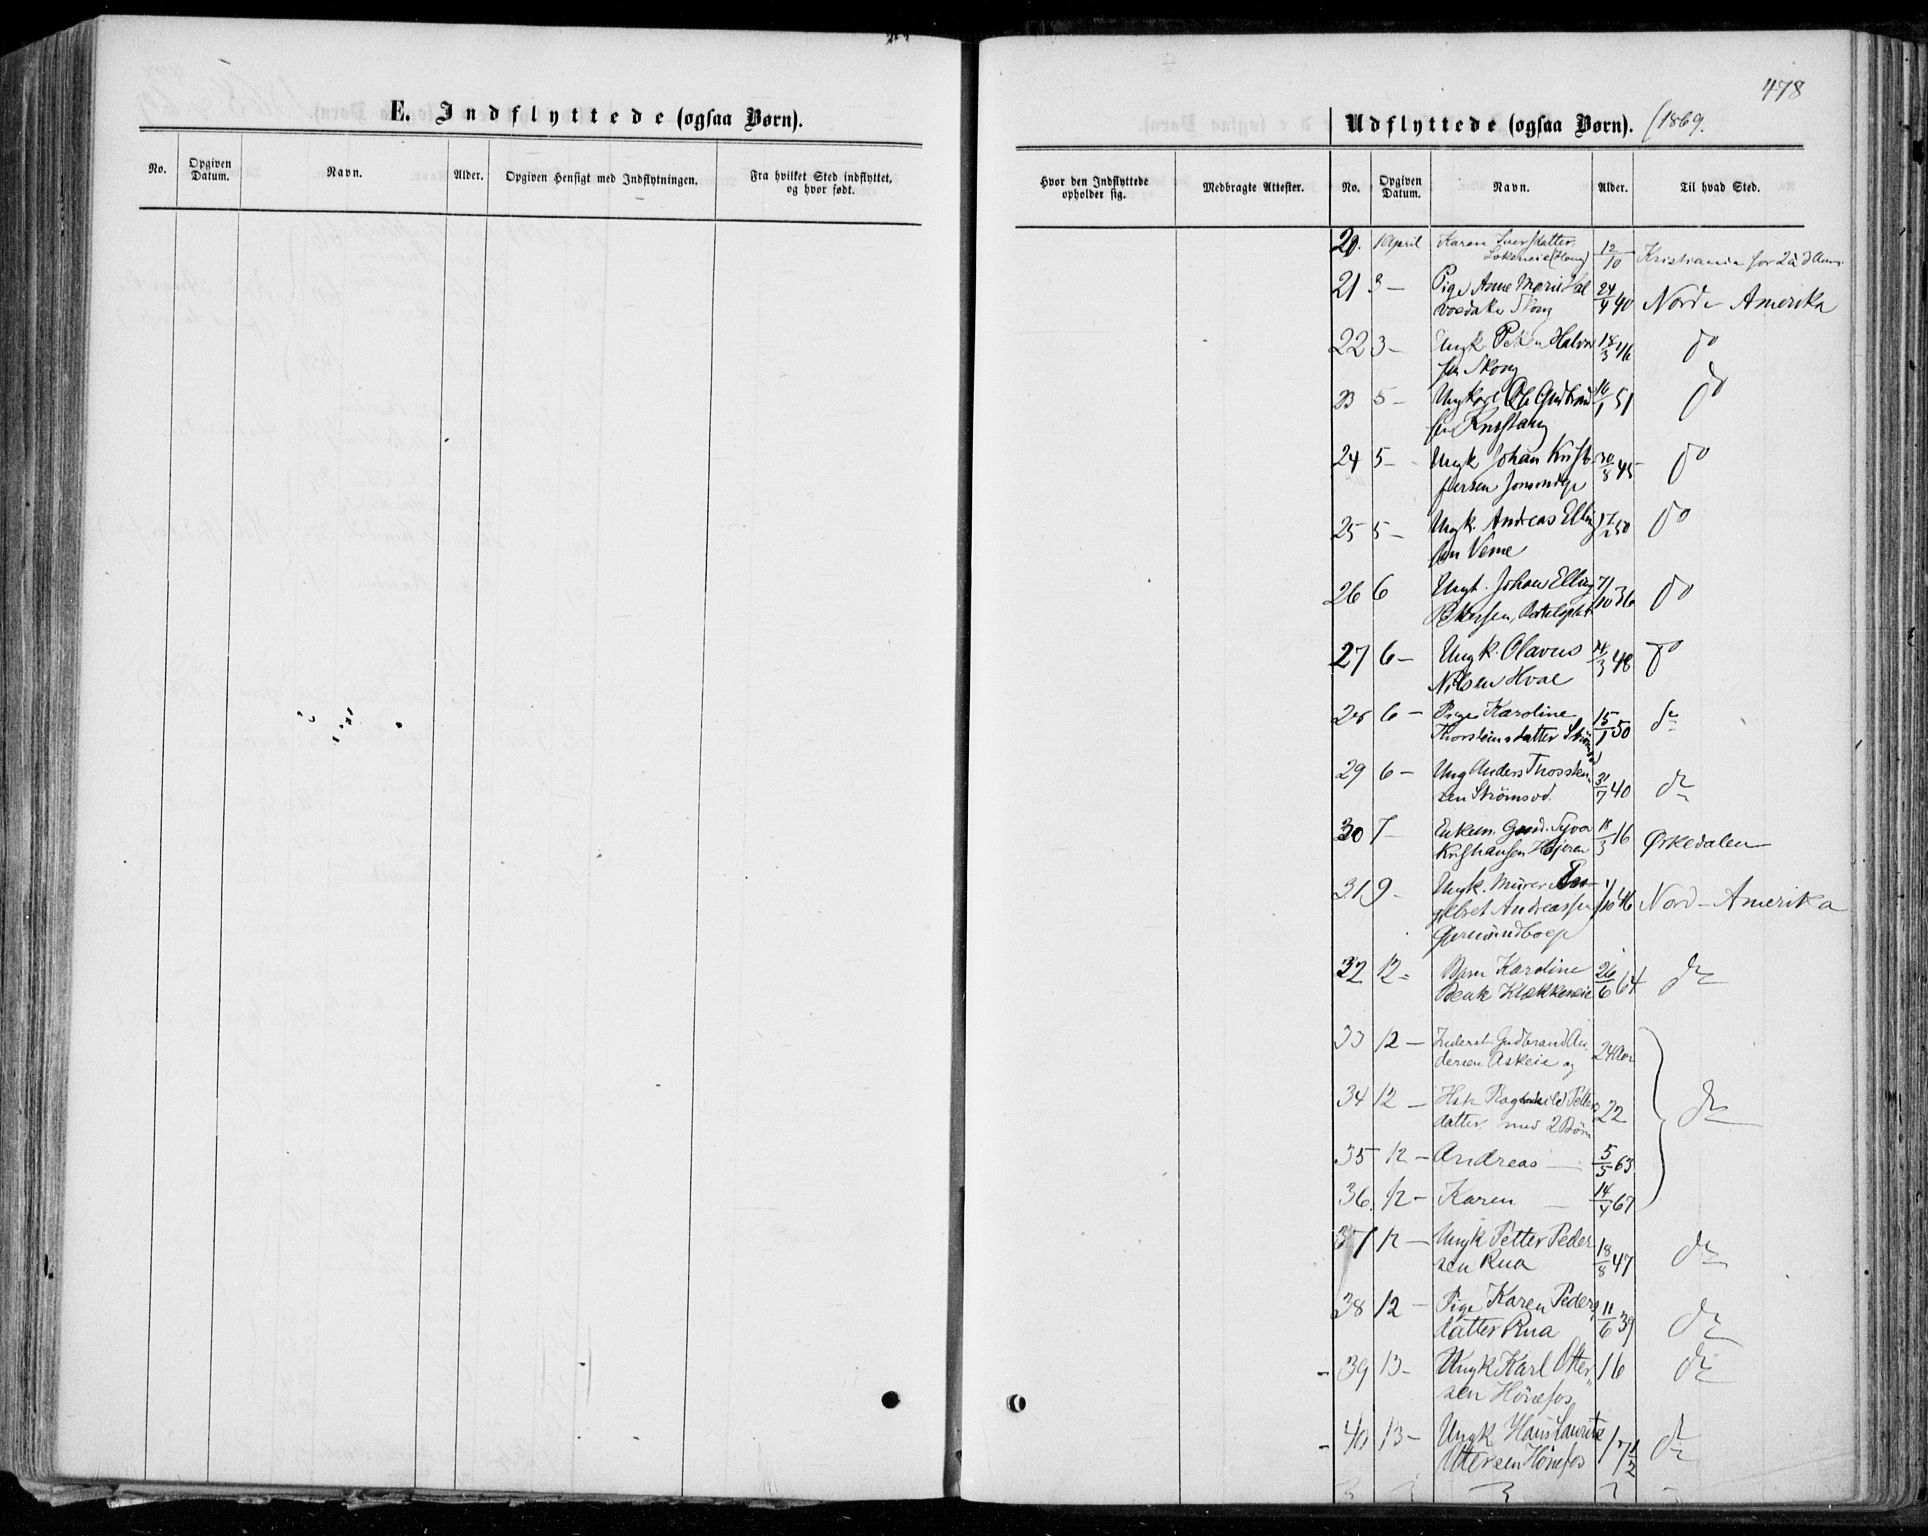 E. Indflyttede (ogsaa Børn).
No.
Opgiven Datum.
Navn.
Alder.
Opgiven Hensigt med Indflytningen.
Fra hvilket Sted indflyttet, og hvor født.
478
Udflyttede (ogsaa Børn). 1869.
Hvor den Indflyttede opholder sig.
Medbragte Attester.
No.
Opgiven Datum.
Navn.
Alder.
Til hvad Sted.
20. 1 April Karen Iversdatter 12/10 Kristiania for
21 3 – Pige Anne Marie Hal 24/4 40 Nord-Amerika
vorsdatter Skoug
22 3 – Ungk. Peter Halvor 18/3 46 do
sen Skoug
23 5 – Ungkarl Ole Gudbrand 16/1 51 do
sen Knestang
24 5 – Ungk Johan Krist 30/8 45 do
25 5 – Ungk. Andreas Elling 50 do
sen Veme
26 6 Ungk. Johan Elling 7/10 36 do
Pettersen,
27 6 – Ungk. Olavus 3 48 do
Nilsen Hval
28 6 – Pige Karoline 15/1 50 do
Thorsteinsdatter
29 6 – Ung Anders Thorstein 31/7 40 do
sen Strømsod.
30 7 – Enkem. 18/3 16 Ørkedalen
Kristiansen Hjeren
31 9 – Ungk. Murer En 10 46 Nord-Amerika
gelbret Andreassen
Gjermundboep
32 12 – Barn Karoline 26/6 64 do
Beate Klækkeneie
33 12 – Inderst Gudbrand An 24 Aar
dersen Askeie og
34 12 – Hst. Ragnhild Petters 22 do
datter. med 2 Børn
35 12 – Andreas – 5/5 63
36. 12 – Karen – 14/4 67
37 12 – Ungk Petter Peder 18/8 47 do
sen Rua
38 12 – Pige Karen Peders 11/6 39 do
datter Rua
39 13 – Ungk Karl Otter 16 do
sen Hönefos
40 13 – Ungk Hans Lauritz 17 1/2 do
Ottersen Hönefos